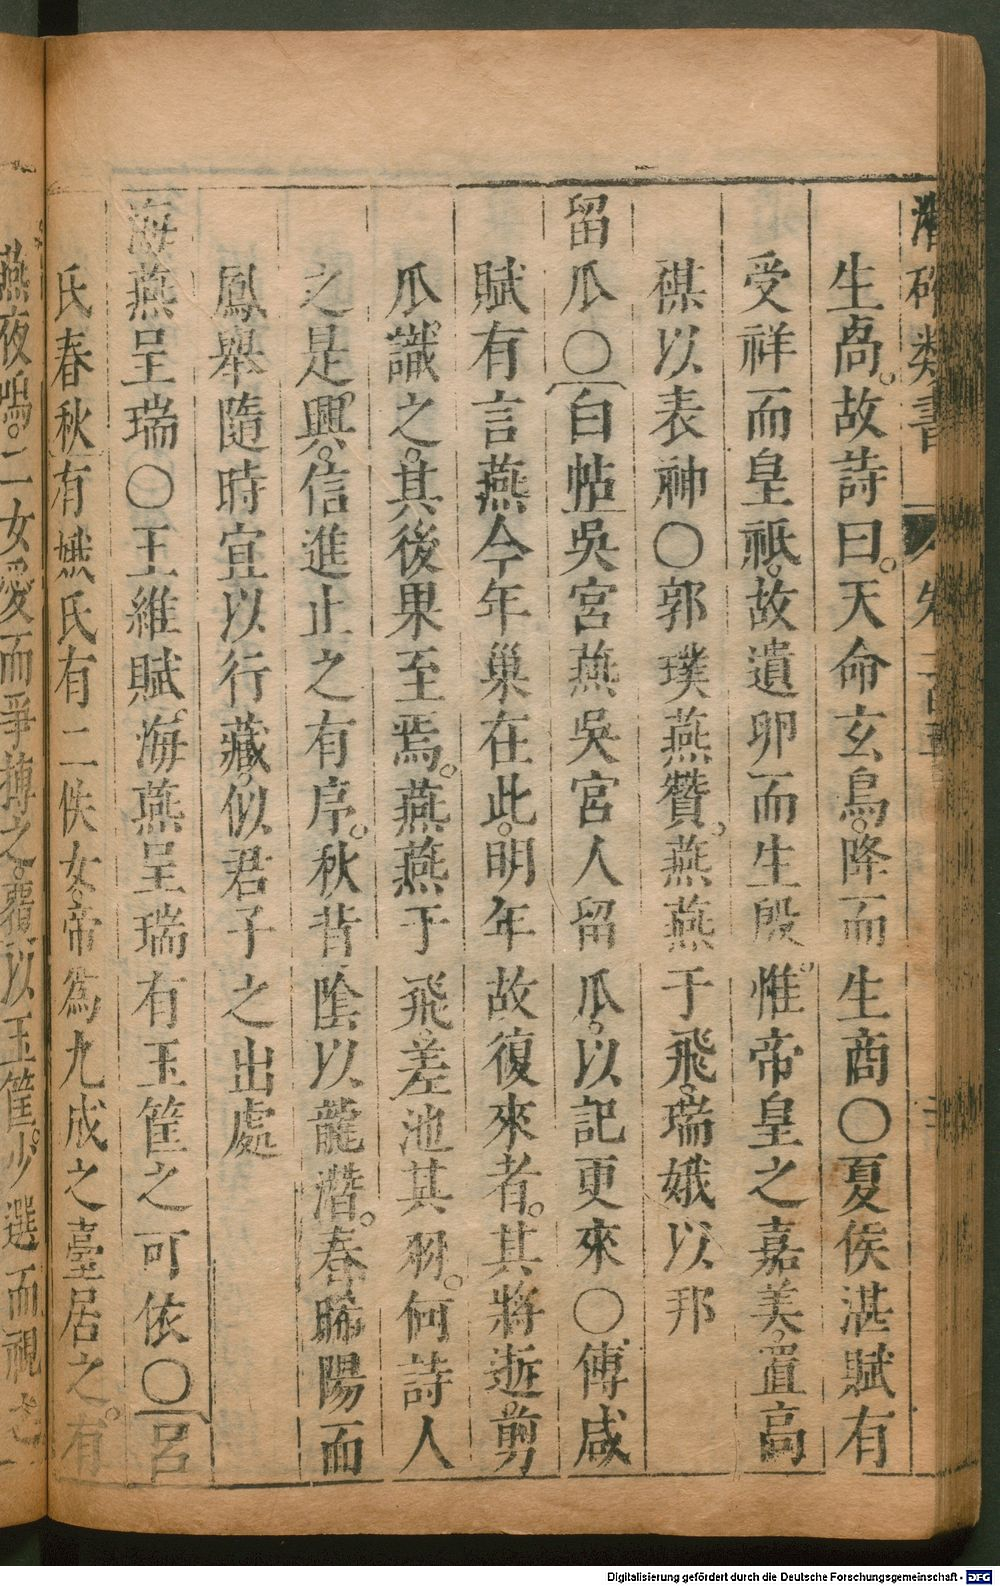 潛確類書 卷
生卨。故詩曰。天命玄鳥。降而生商〇夏侯湛賦有
受祥而皇祇。故遺卵而生殷。惟帝皇之嘉美。置高
禖以表神〇郭璞燕贊。燕燕于飛。瑞娥以邦
留瓜〇白帖吳宮燕吳宮人留瓜。以記更來〇傅咸
賦有言燕今年巢在此。明年故復來者。其將逝。剪
瓜識之。其後果至焉。燕燕于飛。差池其羽。何詩人
之是興。信進止之有序。秋背陰以龍潛。春晞陽而
鳳舉隨時宜以行藏。似君子之出處
海燕呈瑞〇王維賦。海燕呈瑞有玉筐之可依〇呂
氏春秋有娀氏有二佚女。帝為九成之臺居之。有
燕夜鳴。二女愛而爭摶之。覆以玉筐。少選而視之
Digitalisierung gefördert durch die Deutsche Forschungsgemeinschaft - DFG